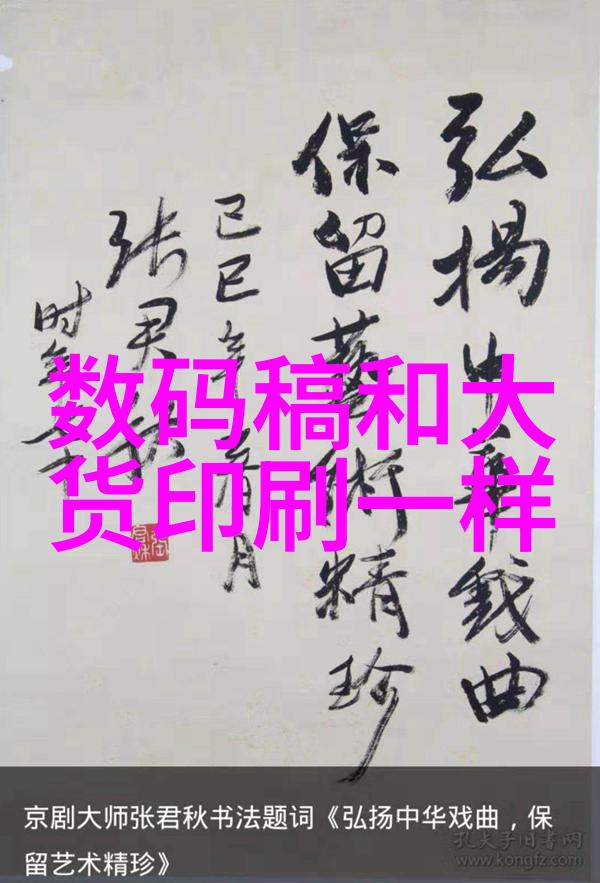 弘揚中華戲曲
保留藝術精珍
己巳年春月
张君秋
时年
数码稿和大
货印刷一样
京剧大师张君秋书法题词《弘扬中华戏曲，保
留艺术精珍》
孔夫子旧书网
www.kongfz.com